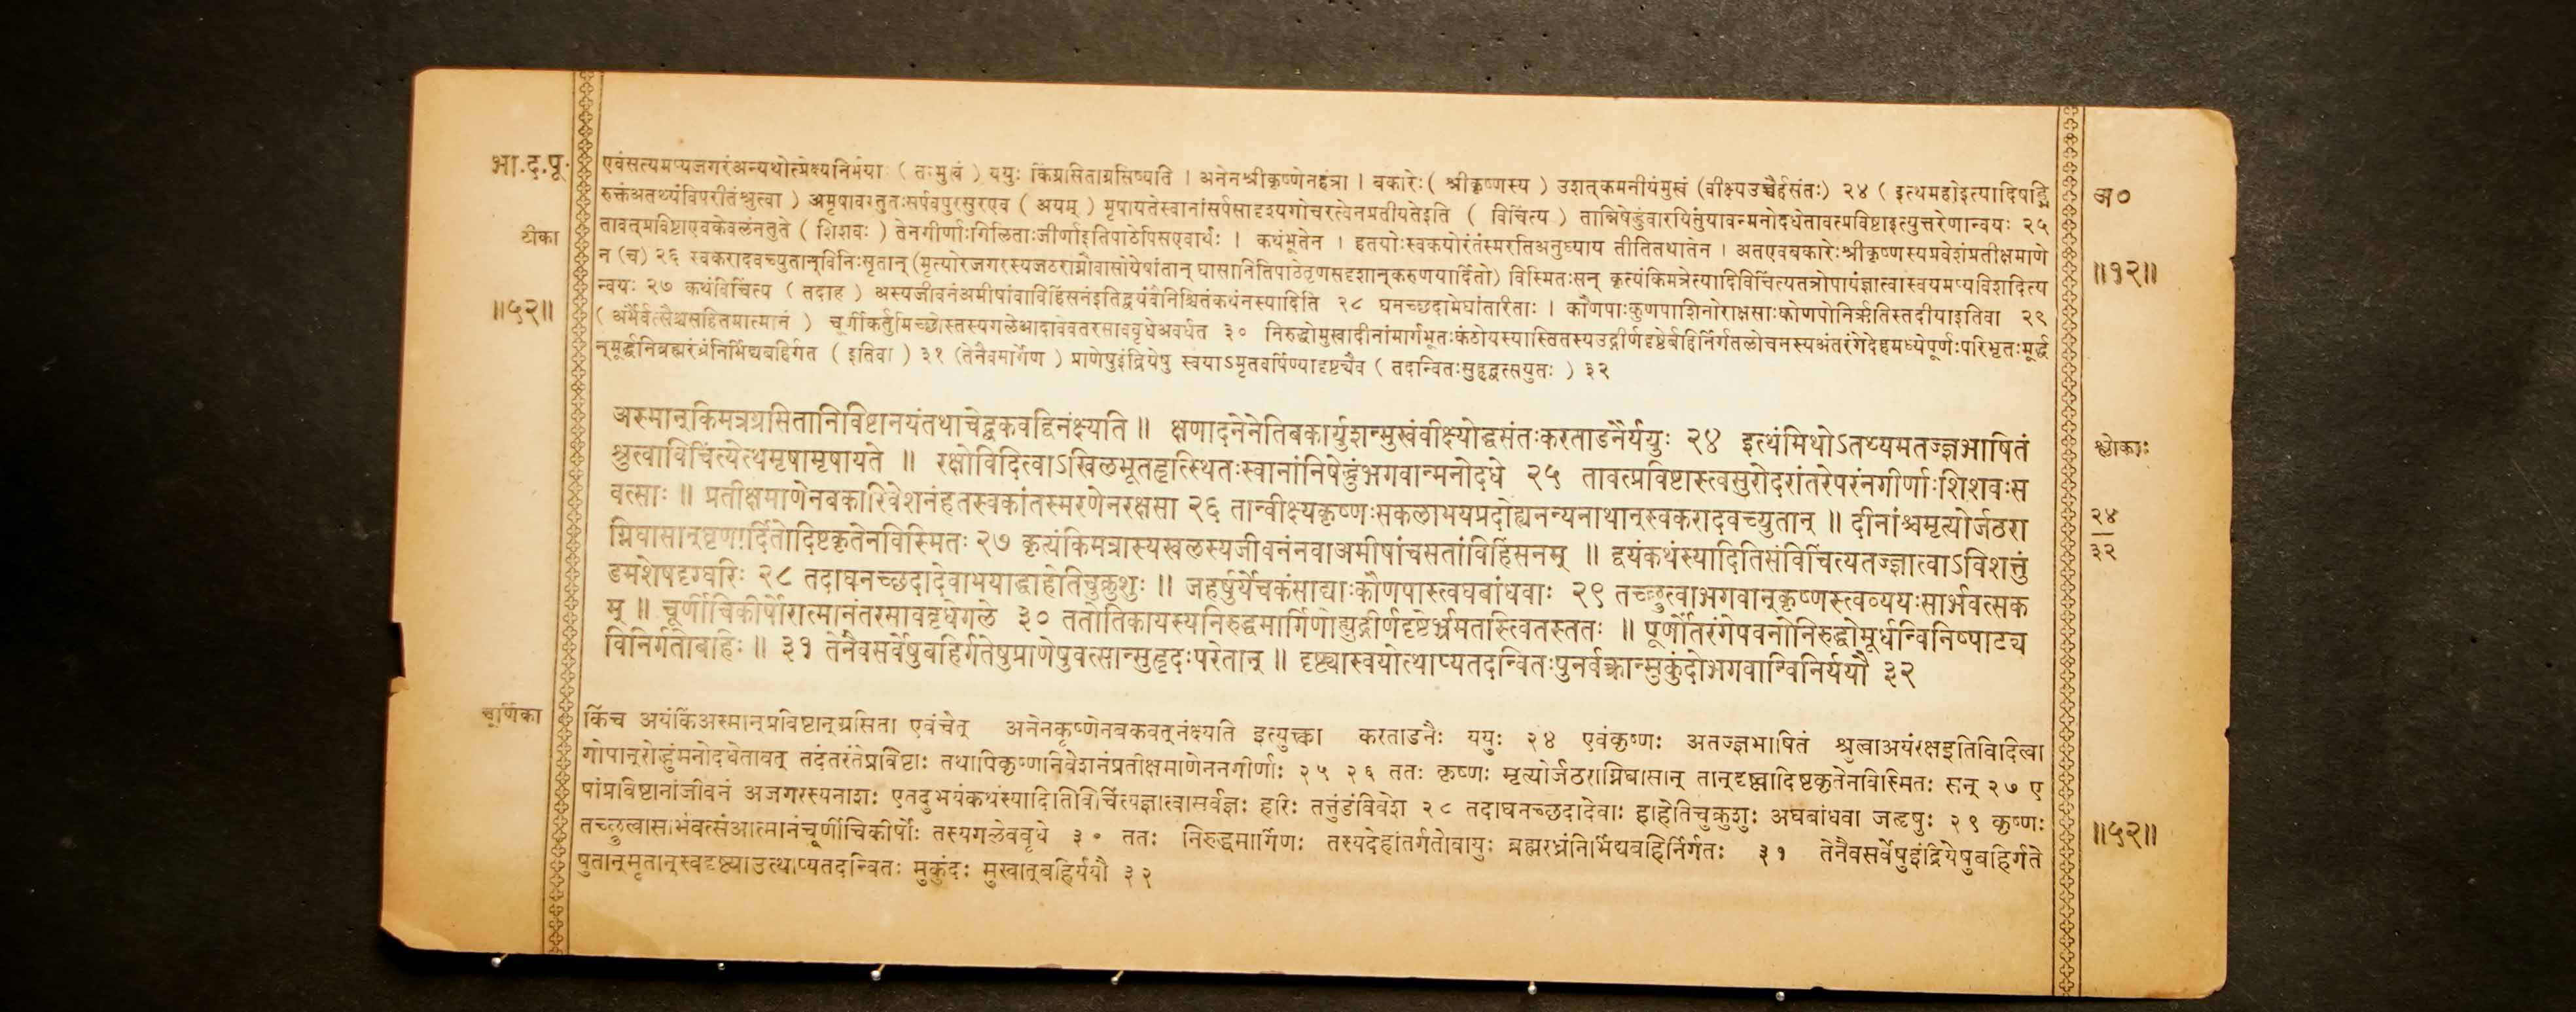 भा.द.पू.
टीका
॥५२॥
एवंसत्यमप्यजगरंअन्यथोत्प्रेक्ष्यनिर्भयाः ( तन्मुखं ) ययुः किंग्रसिताग्रसिष्यति । अनेनश्रीकृष्णेनहंत्रा । बकारेः ( श्रीकृष्णस्य ) उशत्कमनीयंमुखं (वीक्ष्यउच्चैर्हसंतः) २४ ( इत्थमहोइत्यादिषड्भि
रुक्तंअतथ्यंविपरीतंश्रुत्वा ) अमृषावस्तुतःसर्पवपुरसुरएव ( अयम् ) मृषायतेस्वानांसर्पसादृश्यगोचरत्वेनप्रतीयतेइति ( विचिंत्य ) तान्निषेद्धुंवारयितुंयावन्मनोदधेतावत्प्रविष्टाइत्युत्तरेणान्वयः २५
तावत्प्रविष्टाएवकेवलंनतुते ( शिशवः ) तेनगीर्णाःगिलिताःजीर्णाइतिपाठेपिसएवार्थः । कथंभूतेन । हतयोःस्वकयोरंतंस्मरतिअनुध्याय तीतितथातेन । अतएवबकारेःश्रीकृष्णस्यप्रवेशंप्रतीक्षमाणे
न (च) २६ स्वकरादवच्युतान्विनिःसृतान् (मृत्योरजगरस्यजठराग्नौवासोयेषांतान् घासानितिपाठेतृणसदृशान्करुणयार्दितो) विस्मितःसन् कृत्यंकिमत्रेत्यादिविचिंत्यतत्रोपायंज्ञात्वास्वयमप्यविशदित्य
न्वयः २७ कथंविचिंत्य ( तदाह ) अस्यजीवनंअमीषांवाविहिंसनंइतिद्वयंवैनिश्चितंकथंनस्यादिति २८ घनच्छदामेघांतारिताः । कौणपाःकुणपाशिनोराक्षसाःकोणपोनिर्ऋतिस्तदीयाइतिवा २९
( अर्भैर्वत्सैश्चसहितमात्मानं ) चूर्णीकर्तुमिच्छोस्तस्यगलेआदावेवतरसाववृधेअवर्धत ३० निरुद्धोमुखादीनांमार्गभूतःकंठोयस्यास्वितस्यउद्गीर्णदृष्टेर्बहिर्निर्गतलोचनस्यअंतरंगेदेहमध्येपूर्णःपरिभृतःमूर्द्ध
न्मूर्द्धनिब्रह्मरंध्रंनिर्भिद्यबहिर्गत ( इतिवा ) ३१ (तेनैवमार्गेण ) प्राणेषुइंद्रियेषु स्वयाऽमृतवर्षिण्यादृष्ट्यैव ( तदन्वितःसुहृद्वत्सयुतः ) ३२
अस्मान्किमत्रग्रसितानिविष्टानयंतथाचेद्बकवद्विनंक्ष्यति ॥ क्षणादनेनेतिबकार्युशन्मुखंवीक्ष्योद्धसंतःकरताडनैर्ययुः २४ इत्थंमिथोऽतथ्यमतज्ज्ञभाषितं
श्रुत्वाविचिंत्येत्थमृषामृषायते ॥ रक्षोविदित्वाऽखिलभूतहृत्स्थितःस्वानांनिषेद्धुंभगवान्मनोदधे २५ तावत्प्रविष्टास्त्वसुरोदरांतरेपरंनगीर्णाःशिशवःस
वत्साः ॥ प्रतीक्षमाणेनबकारिवेशनंहतस्वकांतस्मरणेनरक्षसा २६ तान्वीक्ष्यकृष्णःसकलाभयप्रदोह्यनन्यनाथान्स्वकरादवच्युतान् ॥ दीनांश्चमृत्योर्जठरा
ग्निवासान्घृणार्दितोदिष्टकृतेनविस्मितः २७ कृत्यंकिमत्रास्यखलस्यजीवनंनवाअमीषांचसतांविहिंसनम् ॥ द्वयंकथंस्यादितिसंविचिंत्यतज्ज्ञात्वाऽविशत्तुं
डमशेषदृग्घरिः २८ तदाघनच्छदादेवाभयाद्धाहेतिचुक्रुशुः ॥ जहर्षुर्येचकंसाद्याःकौणपास्त्वघबांधवाः २९ तच्छ्रुत्वाभगवान्कृष्णस्त्वव्ययःसार्भवत्सक
म् ॥ चूर्णीचिकीर्षोरात्मानंतरसाववृधेगले ३० ततोतिकायस्यनिरुद्धमार्गिणोह्युद्गीर्णदृष्टेर्भ्रमतस्त्वितस्ततः ॥ पूर्णोंतरंगेपवनोनिरुद्धोमूर्धन्विनिष्पाट्य
विनिर्गतोबहिः ॥ ३१ तेनैवसर्वेषुबहिर्गतेषुप्राणेषुवत्सान्सुहृदःपरेतान् ॥ दृष्ट्यास्वयोत्थाप्यतदन्वितःपुनर्वक्त्रान्मुकुंदोभगवान्विनिर्ययौ ३२
चूर्णिका
किंच अयंकिंअस्मान्प्रविष्टान्ग्रसिता एवंचेत् अनेनकृष्णेनबकवत्नंक्ष्यति इत्युक्त्वा करताडनैः ययुः २४ एवंकृष्णः अतज्ज्ञभाषितं श्रुत्वाअयंरक्षइतिविदित्वा
गोपान्रोद्धुंमनोदधेतावत् तदंतरंतेप्रविष्टाः तथापिकृष्णनिवेशनंप्रतीक्षमाणेननगीर्णाः २५ २६ ततः कृष्णः मृत्योर्जठराग्निघासान् तान्दृष्ट्वादिष्टकृतेनविस्मितः सन् २७ ए
षांप्रविष्टानांजीवनं अजगरस्यनाशः एतदुभयंकथंस्यादितिविचिंत्यज्ञात्वासर्वज्ञः हरिः तत्तुंडंविवेश २८ तदाघनच्छदादेवाः हाहेतिचुक्रुशुः अघबांधवा जहृषुः २९ कृष्णः
तच्छ्रुत्वासार्भवत्संआत्मानंचूर्णीचिकीर्षोः तस्यगलेववृधे ३० ततः निरुद्धमार्गिणः तस्यदेहांतर्गतोवायुः ब्रह्मरंध्रंनिर्भिद्यबहिर्निर्गतः ३१ तेनैवसर्वेषुइंद्रियेषुबहिर्गते
षुतान्मृतान्स्वदृष्ट्याउत्थाप्यतदन्वितः मुकुंदः मुखात्बहिर्ययौ ३२
अ०
॥१२॥
श्लोकाः
२४
३२
॥५२॥